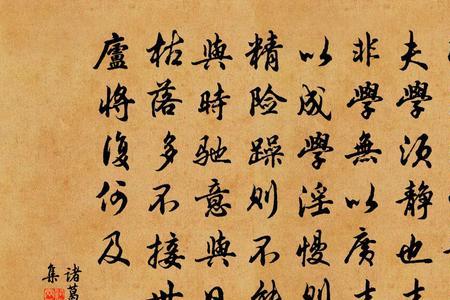 夫學須静也
非學無以廣
以成學淫慢則
精险躁則不能
與時馳意與日
枯落多不接世
廬將復何及
諸葛
集